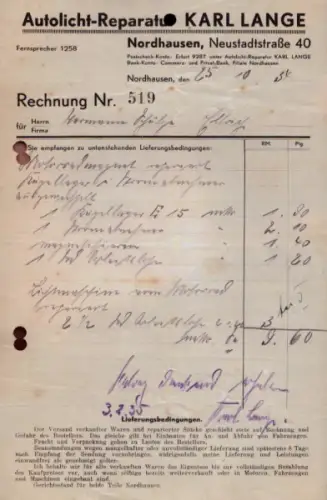 Autolicht-Reparatur KARL LANGE
Fernsprecher 1258
Nordhausen, Neustadtstraße 40
Postscheck-Konto: Erfurt 9287 unter Autolicht-Reparatur KARL LANGE
Bank-Konto: Commerz- und Privat-Bank, Filiale Nordhausen
Nordhausen, den 25 10 34
Rechnung Nr. 519
für Herrn Firma Hermann Schulze Ellrich
Sie empfangen zu untenstehenden Lieferungsbedingungen: RM. Pfg.
Motorradmagnet repariert
Kugellager
1 Kugellager E 15 1. 80
1 2. 10
1 1. 40
1 Std. Arbeitslohn 1 20
Lichtmaschine vom Motorrad
repariert
2½ Std Arbeitslohn 3
9. 60
Betrag dankend erhalten
3.2.35 Karl Lange
Lieferungsbedingungen.
Der Versand verkaufter Waren und reparierter Stücke geschieht stets auf Rechnung und
Gefahr des Bestellers. Das gleiche gilt bei Einbauten für An- und Abfuhr von Fahrzeugen.
Fracht und Verpackung gehen zu Lasten des Bestellers.
Beanstandungen wegen mangelhafter oder unvollständiger Lieferung sind spätestens 8 Tage
nach Empfang der Sendung vorzubringen, widrigenfalls meine Lieferung und Leistungen
einwandfrei als genehmigt gelten.
Ich behalte mir für alle verkauften Waren das Eigentum bis zur vollständigen Bezahlung
des Kaufpreises vor, auch wenn selbige bereits weiterverkauft oder in Motoren, Fahrzeugen
und Maschinen eingebaut sind.
Gerichtsstand für beide Teile Nordhausen.